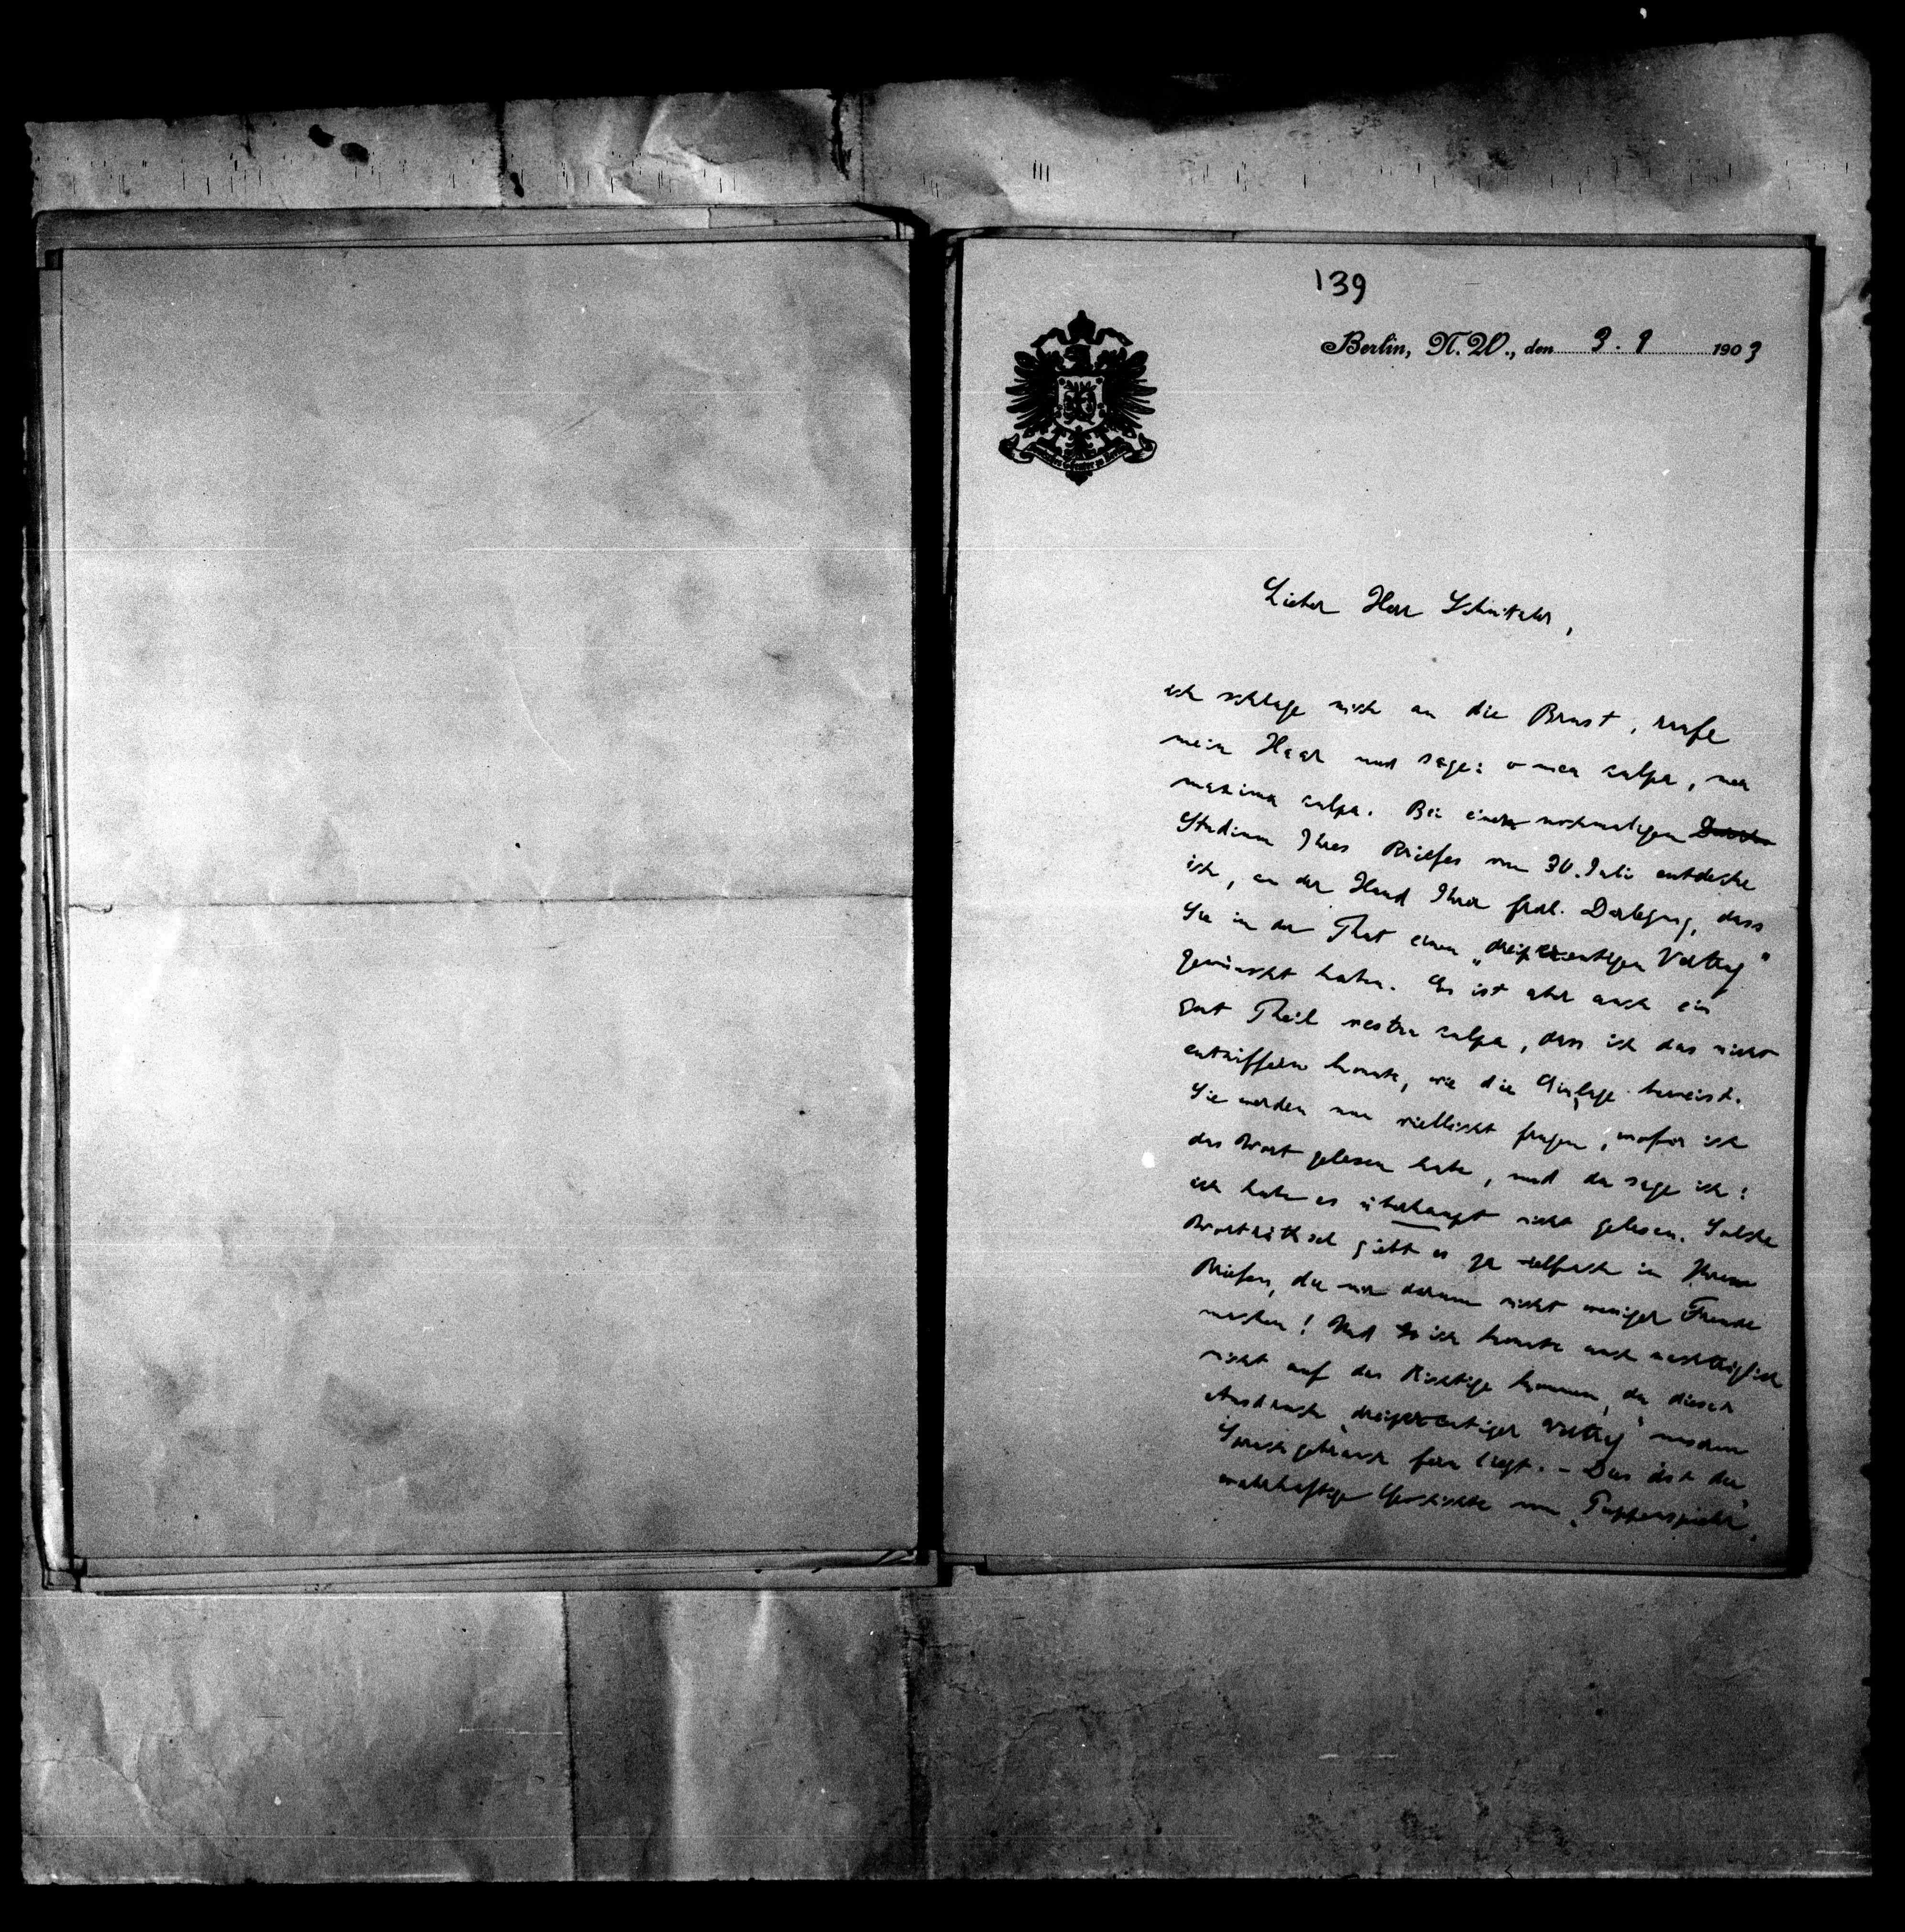 139
Berlin, N.W., den 3. 9 1903
Lieber Herr Schnitzler,
ich schlage mich an die Brust, raufe
mein Haar und sage: o mea culpa, mea
maxima culpa. Bei einem nochmaligen
Studium Ihres Briefes vom 30. Juli entdecke
ich, an der Hand Ihrer frdl. Darlegung, dass
Sie in der That einen „dreiprozentigen Vertrag"
gewünscht haben. Es ist aber auch ein
gut Theil vestra culpa, dass ich das nicht
entziffern konnte, wie die Einlage beweist.
Sie werden nun vielleicht fragen, wofür ich
das Wort gelesen habe, und da sage ich:
ich habe es überhaupt nicht gelesen. Solche
Worträthsel giebt es ja vielfach in Ihren
Briefen, die mir darum nicht weniger Freude
machen! Und ich konnte auch nachträglich
nicht auf das Richtige kommen, da dieser
Ausdruck „dreiprozentiger Vertrag" unserm
Sprachgebrauch fern liegt. – Das ist die
wahrhaftige Geschichte vom „Puppenspieler".